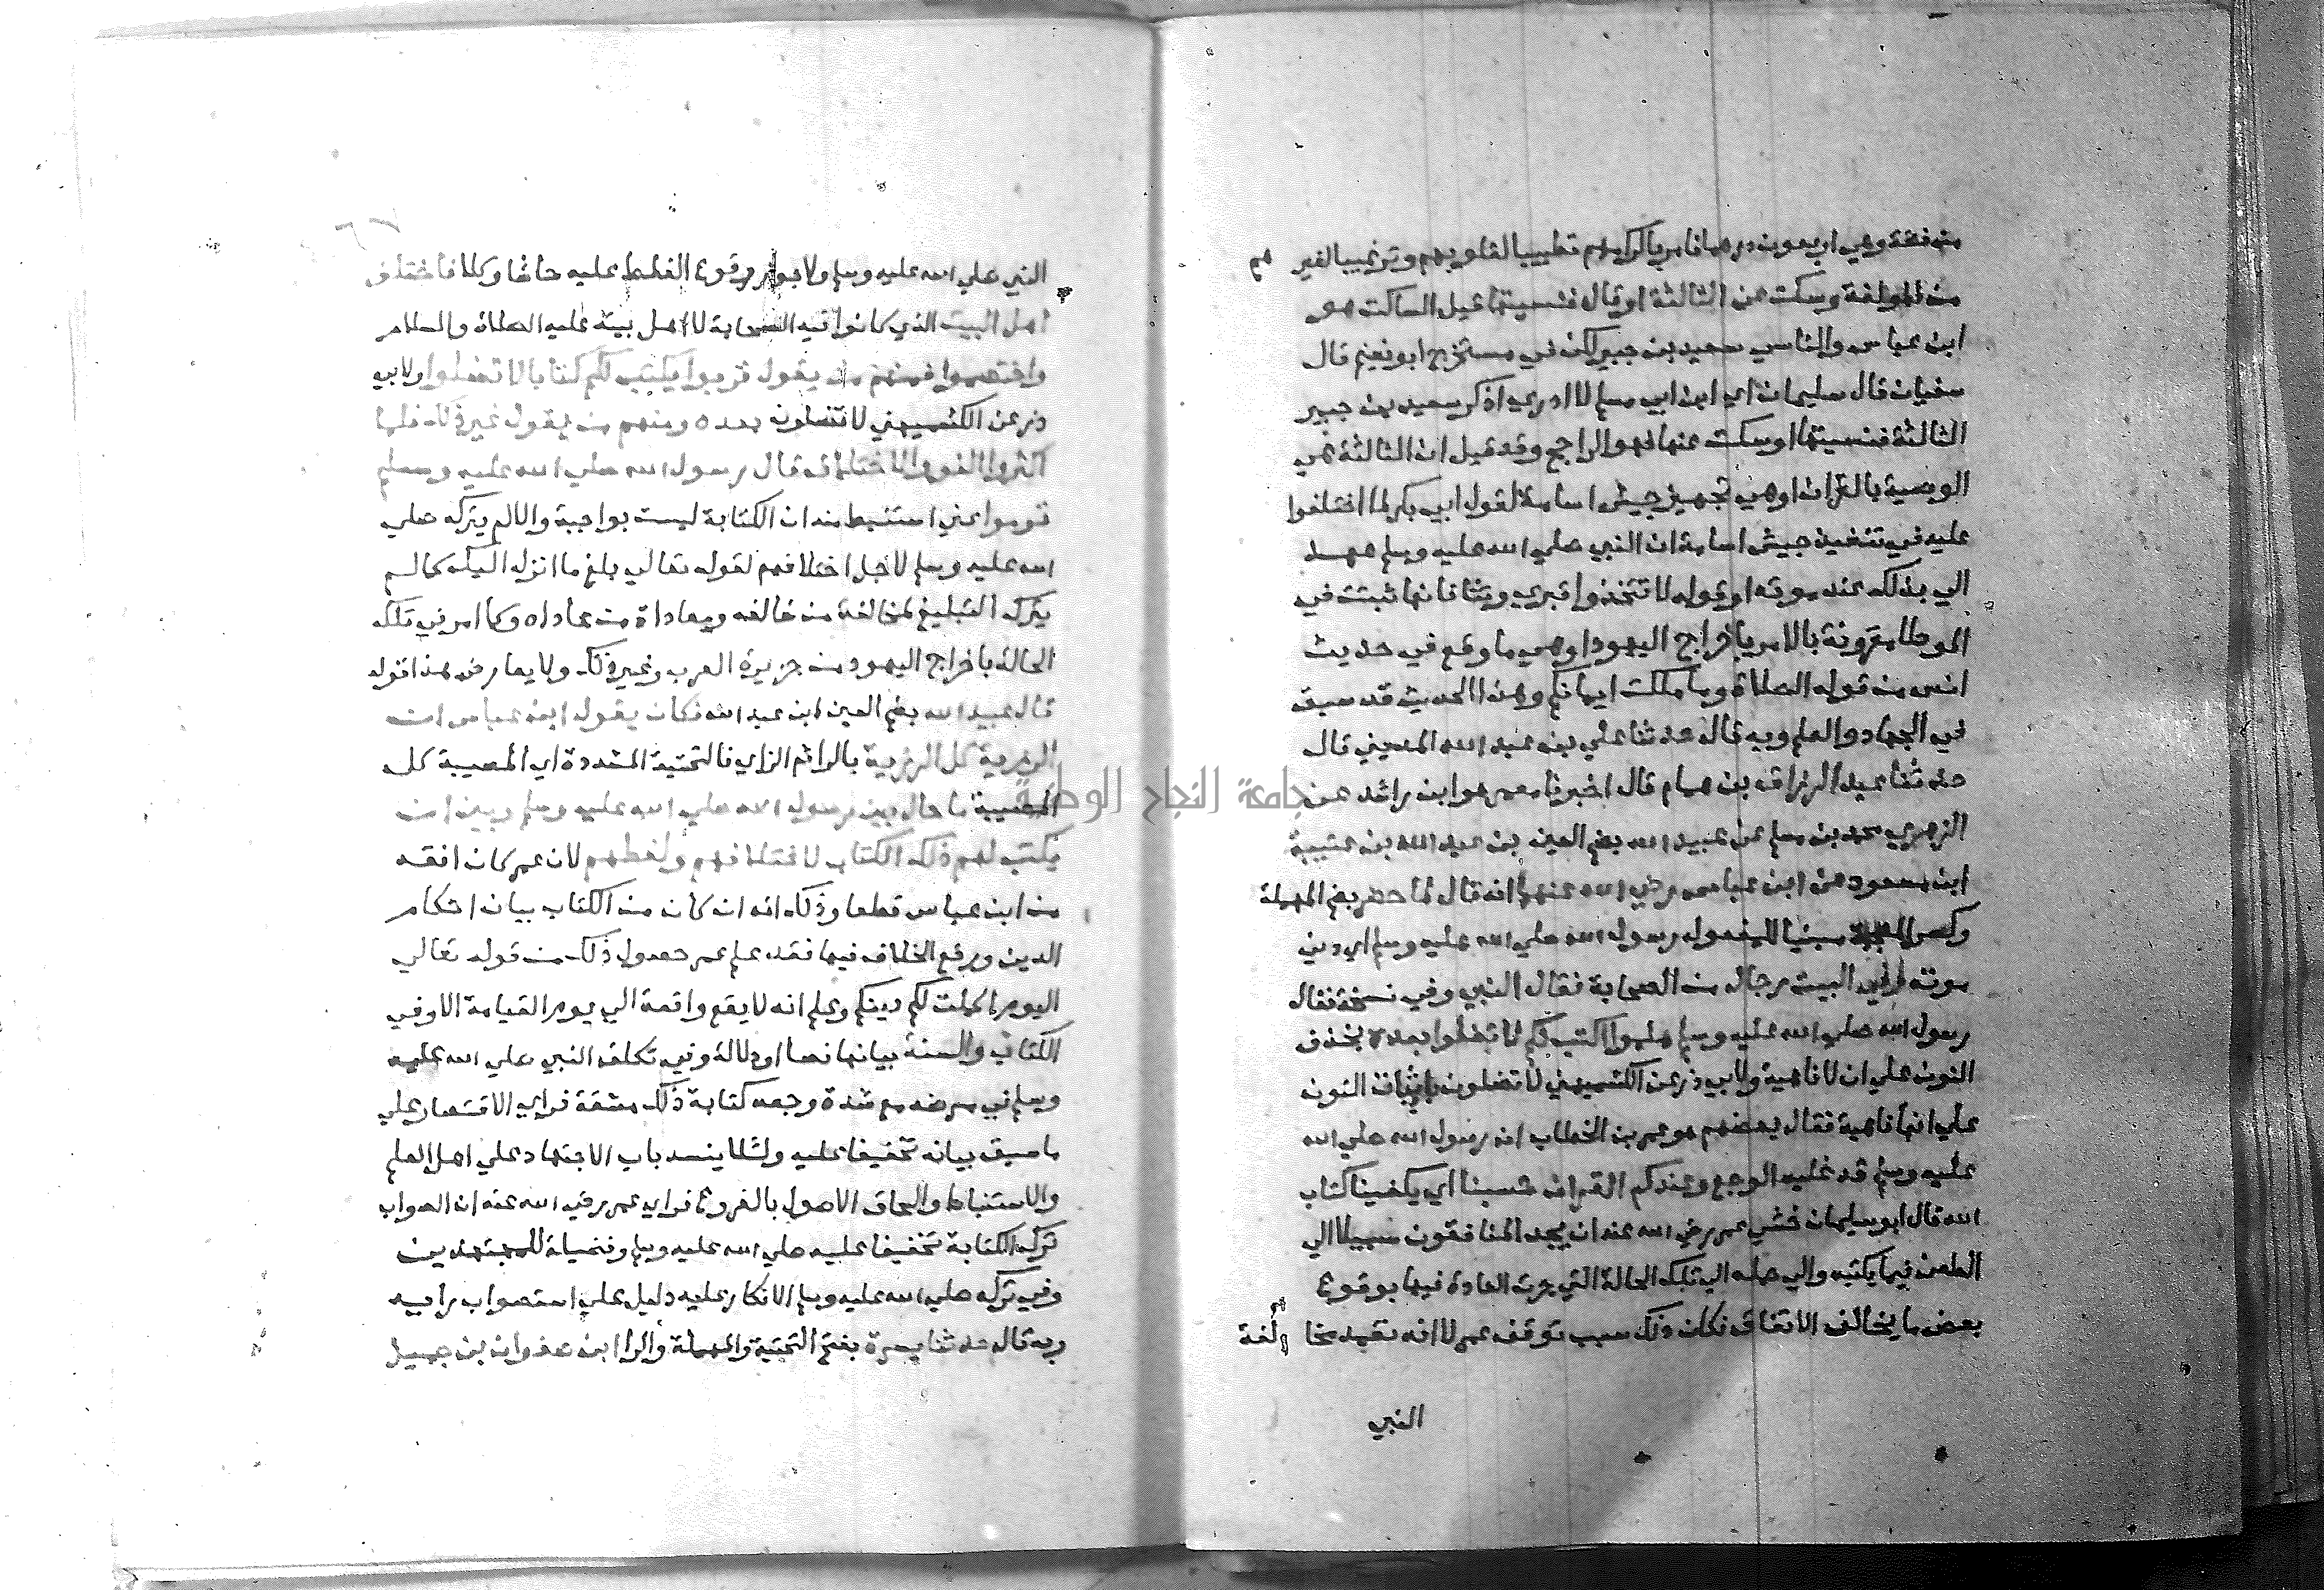 من فضة وهي اربعون درهما فامر باكرامهم تطييبا لقلوبهم وترغيبا لغير هم
من المولفة وسكت عن الثالثة او قال فنسيتها قيل الساكت هو
ابن عباس والناسي سعيد بن جبير لكن في مستخرج ابو نعيم قال
سفيان قال سليمان اي ابن ابي مسلم لا ادري اذكر سعيد بن جبير
الثالثة فنسيتها او سكت عنها فهو الراجح وقد قيل ان الثالثة هي
الوصية بالقران او هي تجهيز جيش اسامة لقول ابي بكر لما اختلفوا
عليه في تنفيذ جيش اسامة ان النبي صلي الله عليه وسلم عهد
الي بذلك عند موته او قوله لا تتخذوا قبري وثنا فانها ثبتت في
الموطا مقرونة بالامر باخراج اليهود او هي ما وقع في حديث
انس من قوله الصلاة وما ملكت ايمانكم وهذا الحديث قد سبق
في الجهاد والعلم وبه قال حدثنا علي بن عبد الله المديني قال
حدثنا عبد الرزاق بن همام قال اخبرنا معمر هو ابن راشد عن
الزهري محمد بن مسلم عن عبيد الله بضم العين بن عبد الله بن عتيبة
ابن مسعود عن ابن عباس رضي الله عنهما انه قال لما حضر بضم المهملة
وكسر المعجمة مبنيا للمفعول رسول الله صلي الله عليه وسلم اي دني
موته وفي البيت رجال من الصحابة فقال النبي وفي نسخة فقال
رسول الله صلي الله عليه وسلم هلموا اكتب لكم لا تضلوا بعده بحذف
النون علي ان لا ناهية ولابي ذر عن الكشميهني لا تضلون باثبات النون
علي انها نافية فقال بعضهم هو عمر بن الخطاب ان رسول الله صلي الله
عليه وسلم قد غلبه الوجع وعندكم القران حسبنا اي يكفينا كتاب
الله قال ابو سليمان خشي عمر رضي الله عنه ان يجد المنافقون سبيلا الي
الطعن فيما يكتبه والي حمله الي تلك الحالة التي جرت العادة فيها بوقوع
بعض ما يخالف الاتفاق فكان ذلك سبب توقف عمر لا انه تعمد مخا لفة
النبي
٦٧
النبي صلي الله عليه وسلم ولا يجوز وقوع الغلط عليه حاشا وكلا فاختلف
اهل البيت الذي كانوا فيه الصحابة لا اهل بيته عليه الصلاة والسلام
واختصموا فمنهم من يقول قربوا يكتب لكم كتابا لا تضلوا ولابي
ذر عن الكشميهني لا تضلون بعده ومنهم من يقول غير ذلك فلما
اكثروا اللغو والاختلاف قال رسول الله صلي الله عليه وسلم
قوموا عني استنبط منه ان الكتابة ليست بواجبة والا لم يتركه صلي
الله عليه وسلم لاجل اختلافهم لقوله تعالي بلغ ما انزل اليك كما لم
يترك التبليغ لمخالفة من خالفه ومعاداة من عاداه وكما امر في تلك
الحالة باخراج اليهود من جزيرة العرب وغير ذلك ولا يعارض هذا قوله
قال عبيد الله بضم العين ابن عبد الله فكان يقول ابن عباس ان
الرزية كل الرزية بالرا ثم الزاي فالتحتية المشددة اي المصيبة كل
المصيبة ما حال بين رسول الله صلي الله عليه وسلم وبين ان
يكتب لهم ذلك الكتاب لاختلافهم ولغطهم لان عمر كان افقه
من ابن عباس قطعا وذلك انه ان كان من الكتاب بيان احكام
الدين ورفع الخلاف فيها فقد علم عمر حصول ذلك من قوله تعالي
اليوم اكملت لكم دينكم وعلم انه لا يقع واقعة الي يوم القيامة الا وفي
الكتاب والسنة بيانها نصا او دلالة وفي تكلف النبي صلي الله عليه
وسلم في مرضه مع شدة وجعه كتابة ذلك مشقة فراي الاقتصار علي
ما سبق بيانه تخفيفا عليه ولئلا ينسد باب الاجتهاد علي اهل العلم
والاستنباط والحاق الاصول بالفروع فراي عمر رضي الله عنه ان الصواب
ترك الكتابة تخفيفا عليه صلي الله عليه وسلم وفضيلة للمجتهدين
وفي تركه صلي الله عليه وسلم الانكار عليه دليل علي استصواب رايه
وبه قال حدثنا يسرة بفتح التحتية والمهملة والرا ابن صفوان بن جميل
جامعة النجاح الوطنية